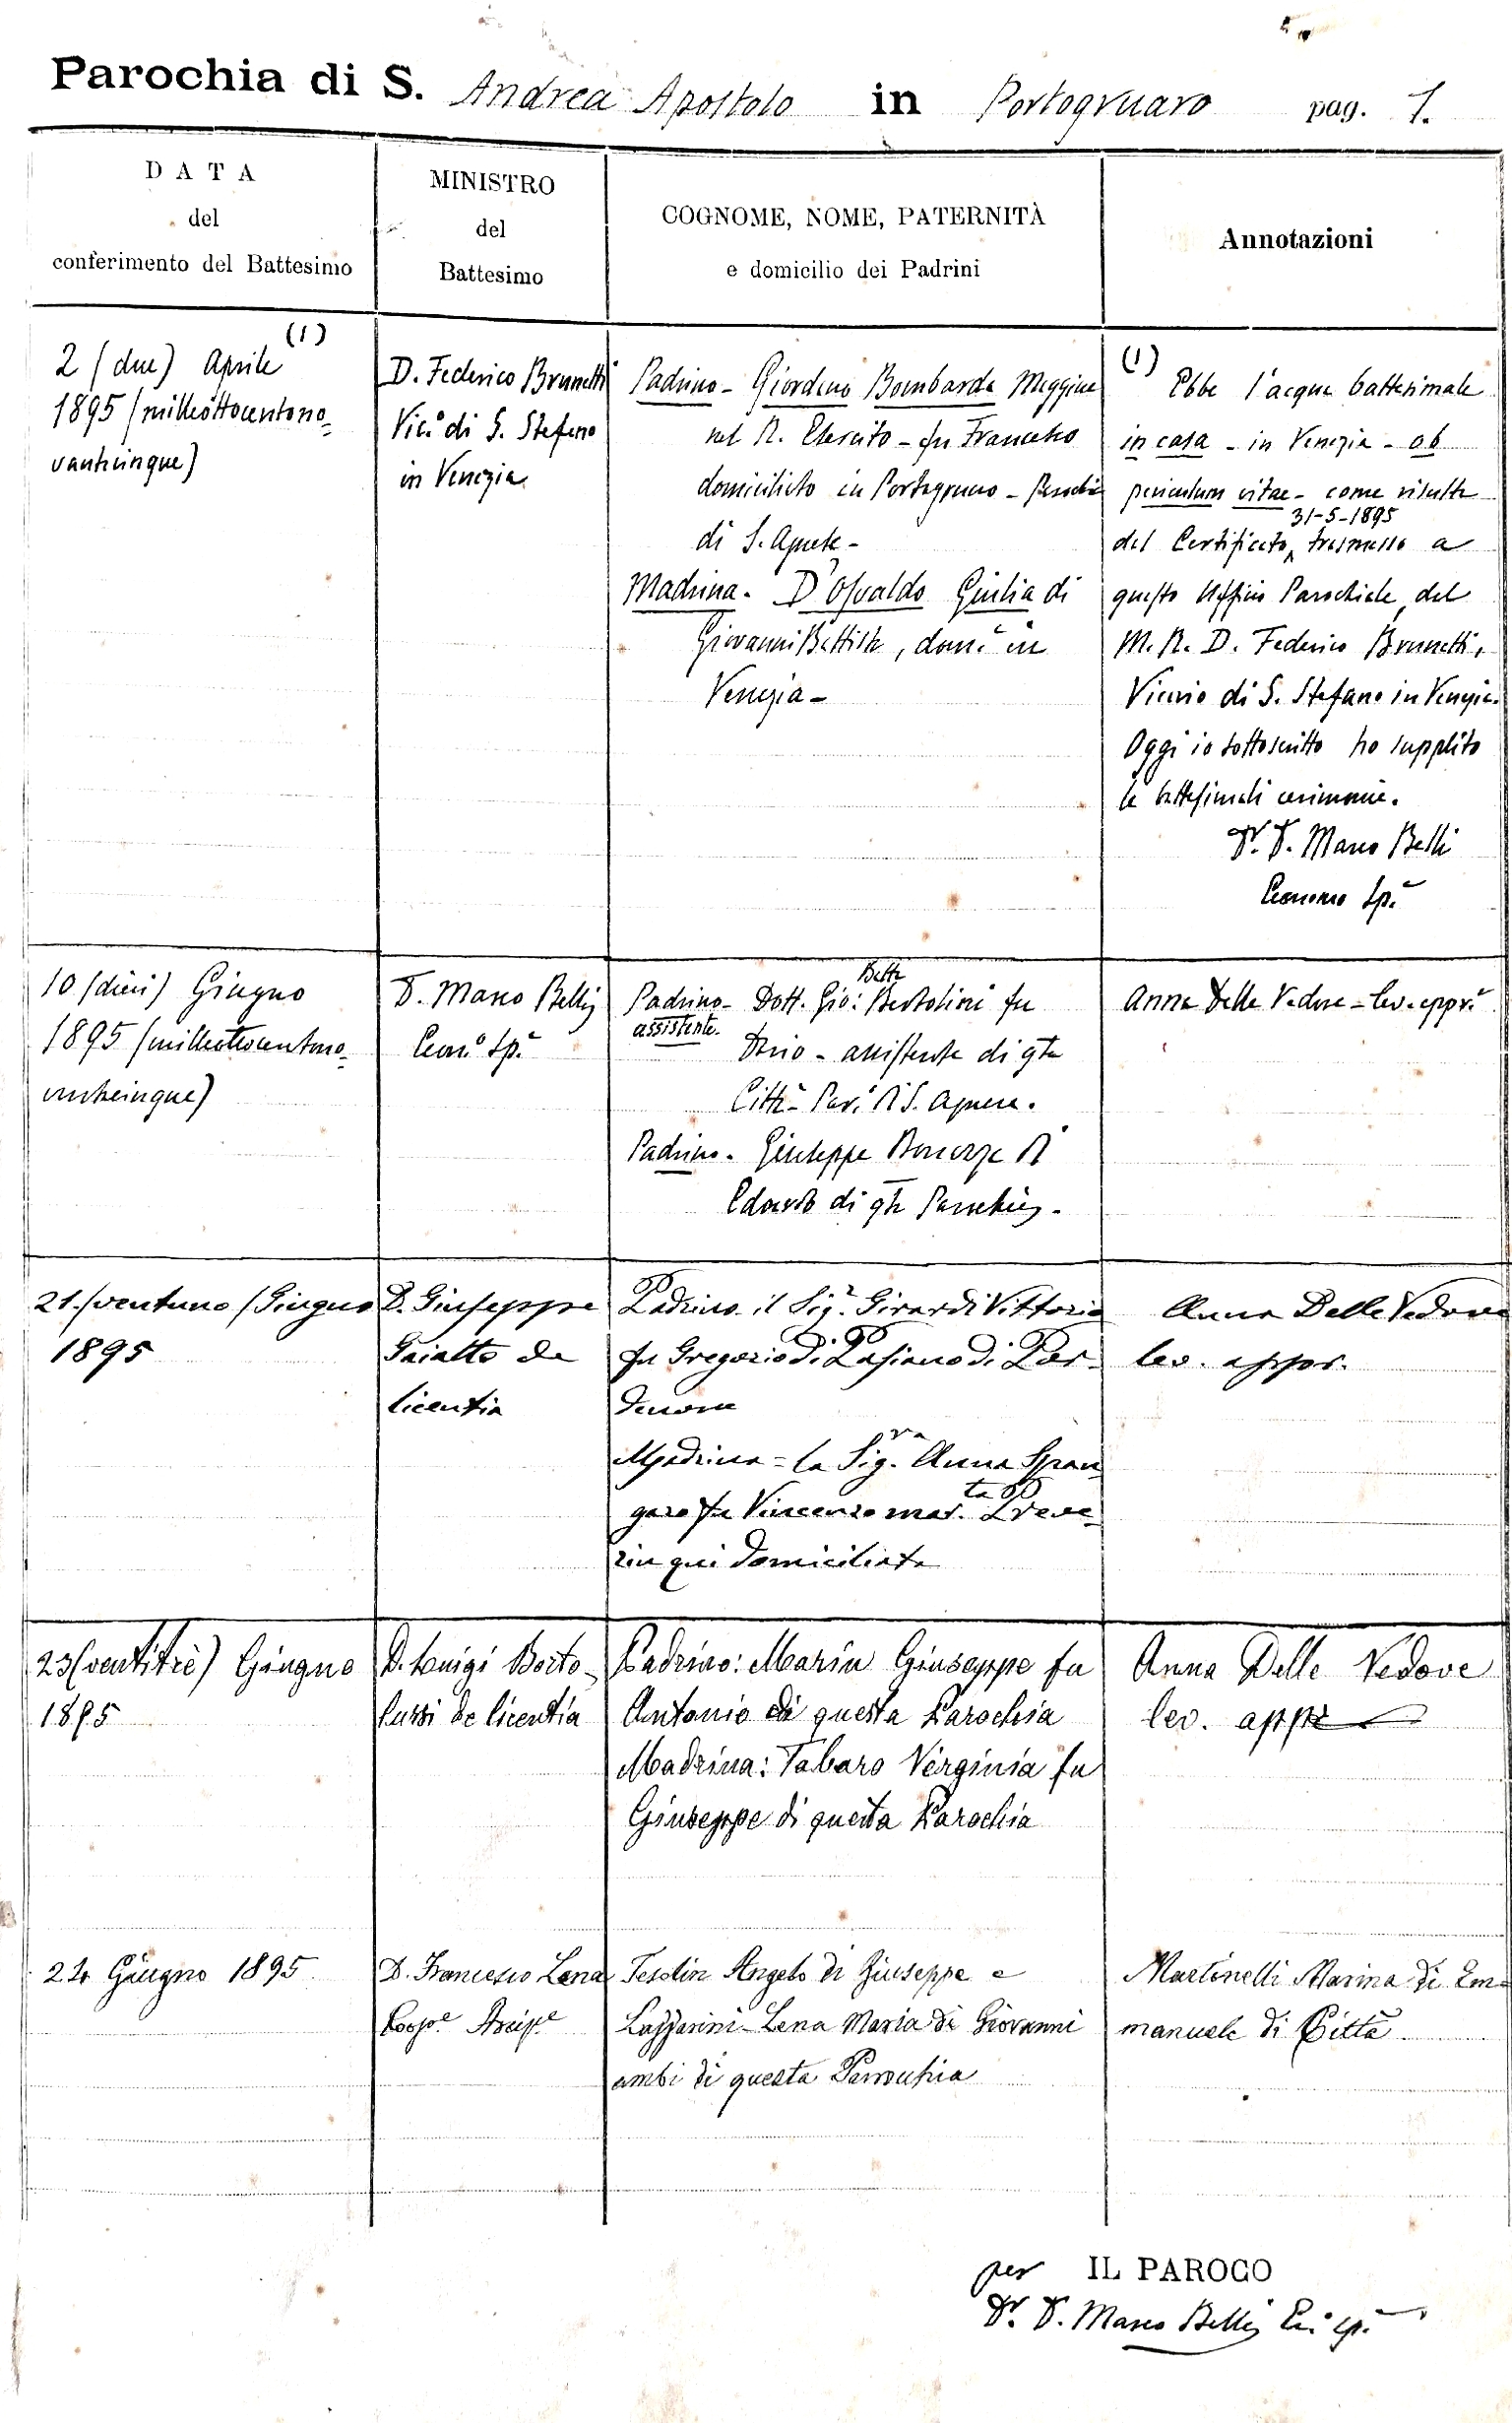 Parochia di S. Andrea Apostolo in Portogruaro pag. 1.
DATA
del
conferimento del Battesimo
MINISTRO
del
Battesimo
COGNOME, NOME, PATERNITÀ
e domicilio dei Padrini
Annotazioni
2 (due) Aprile (1)
1895 (milleottocentono=
vantacinque)
D. Federico Brunetti
Vic.o di S. Stefano
in Venezia
Padrino - Giordano Bombarda Maggiore
nel R. Esercito - fu Francesco
domiciliato in Portogruaro - Parochia
di S. Agnese -
Madrina - D'Osvaldo Giulia di
Giovanni Battista, dom.a in
Venezia -
(1) Ebbe l'acqua battesimale
in casa - in Venezia - ob
periculum vitae - come risulta
31-5-1895
dal Certificato, trasmesso a
questo Uffizio Parochiale, dal
M. R. D. Federico Brunetti,
Vicario di S. Stefano in Venezia.
Oggi io sottoscritto ho supplito
le battesimali cerimonie.
Dr. D. Marco Belli
Economo Sp.e
10 (dieci) Giugno
1895 (milleottocentono=
vantacinque)
D. Marco Belli
Econ.o Sp.e
Batta
Padrino - Dott. Gio: Bertolini fu
assistente.
Dario - assistente di q.ta
Città - Par.a di S. Agnese.
Padrino - Giuseppe Bonazza di
Edoardo di q.ta Parochia -
Anna Delle Vedove = lev. appr.a
21. (ventuno) Giugno
1895
D. Giuseppe
Gaiatto de
licentia
Padrino il Sig.r Girardi Vittorio
fu Gregorio di Pasiano di Por-
denone
Madrina = la Sig.ra Anna Span
garo fu Vincenzo mar.ta Preve-
rin qui domiciliata
Anna Delle Vedove
lev. appr.
23 (ventitrè) Giugno
1895
D. Luigi Borto-
lussi de licentia
Padrino: Marin Giuseppe fu
Antonio di questa Parochia
Madrina: Tabaro Virginia fu
Giuseppe di questa Parochia
Anna Delle Vedove
lev. appr
24 Giugno 1895
D. Francesco Lena
Coop.e Arcip.e
Tesolin Angelo di Giuseppe e
Lazzarini-Lena Maria di Giovanni
ambi di questa Parrochia
Martinelli Marina di Em=
manuele di Città
per IL PAROCO
Dr. D. Marco Belli Ec. sp.